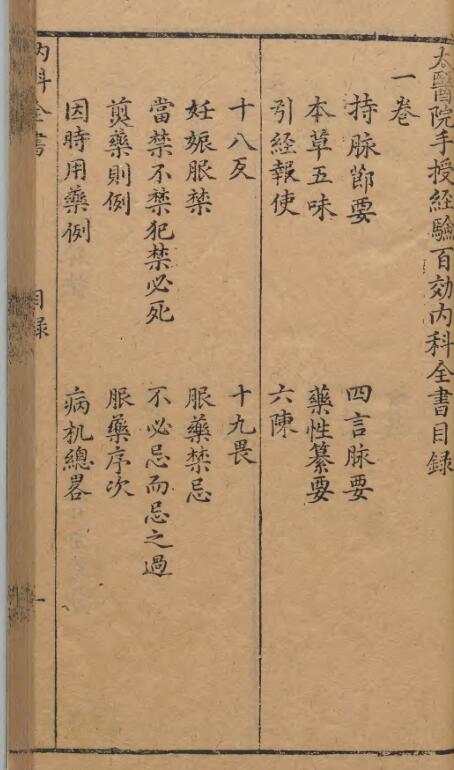 太醫院手授経驗百効内科全書目録
一卷
持脉節要
四言脉要
本草五味
藥性纂要
引経報使
六陳
十八反
十九畏
妊娠服禁
服藥禁忌
當禁不禁犯禁必死
不必忌而忌之過
煎藥則例
服藥序次
因時用藥例
病机總畧
内科全書
目録
一